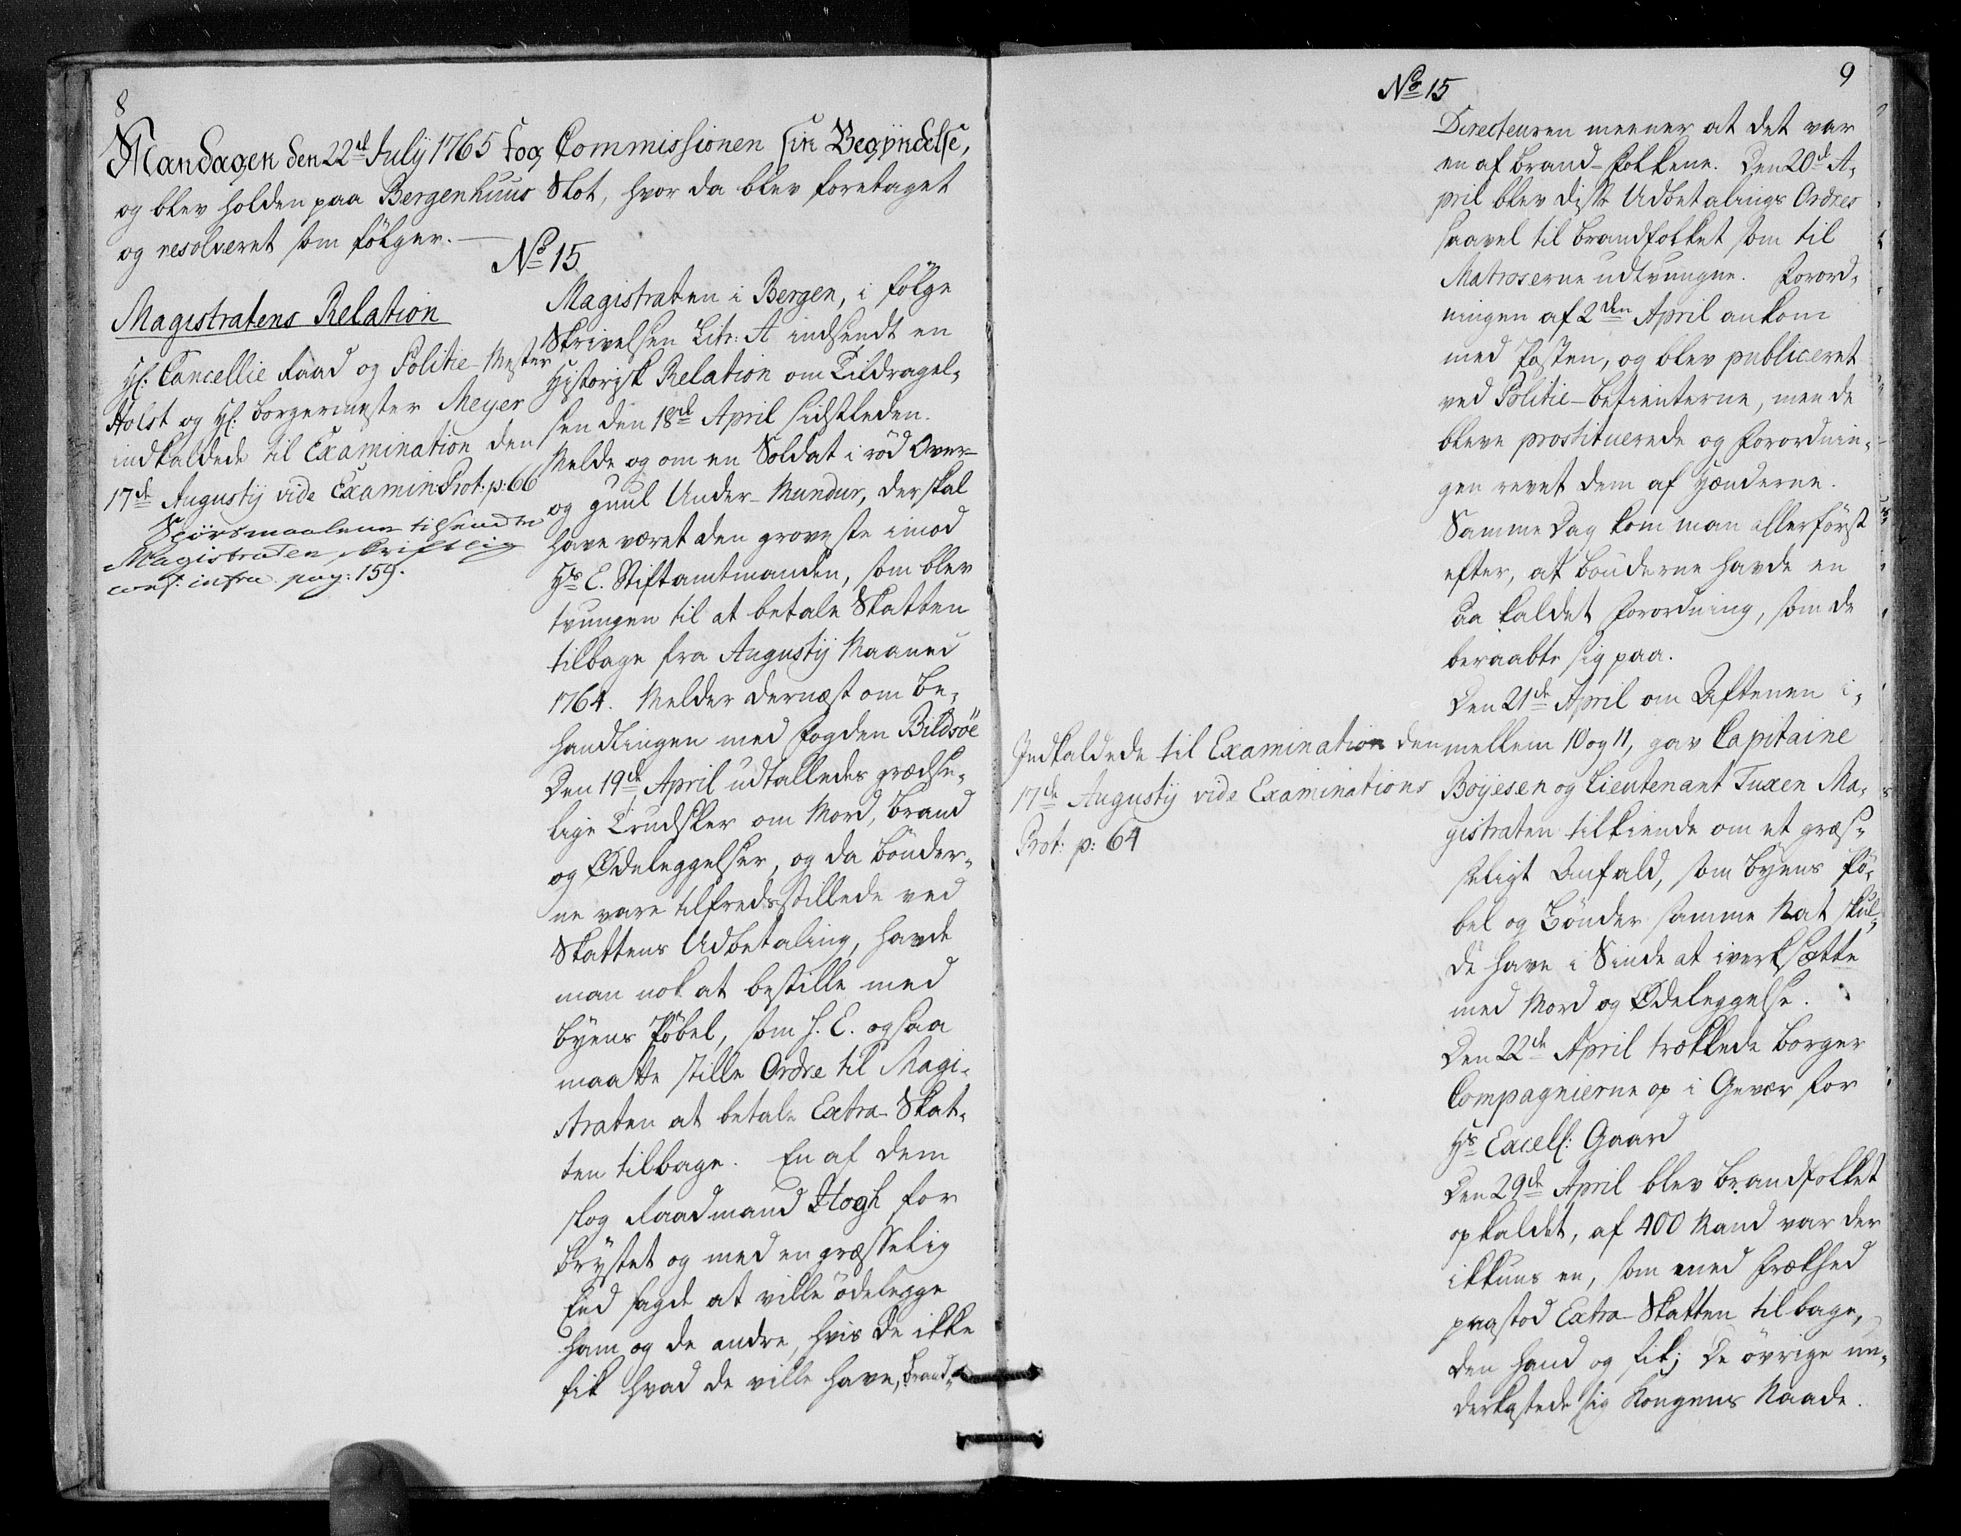 8
Mandagen den 22d July 1765 tog Commissionen sin Begyndelse,
og blev holden paa Bergenhuus Slot, hvor da blev foretaget
og resolveret som følger.
No 15
Magistratens Relation
Hr: Cancellie Raad og Politie-Mester
Holst og Hr: borgermester Meyer
indkaldede til Examination den
17de Augustij vide Examin: Prot: p: 66
Spörsmaalene tilsendte
Magistraten skriftlig
conf: infra pag: 159.
Magistraten i Bergen, i følge
Skrivelsen Litr: A indsendt en
Historisk Relation om Tildragel-
sen den 18de April sidstleden.
Melde og om en Soldat i röd Over-
og guul Under-Mundur, der skal
have været den groveste imod
Hs E. Stiftamtmanden, som blev
tvungen til at betale Skatten
tilbage fra Augustij Maaned
1764. Melder dernæst om be-
handlingen med Fogden Bildsöe
Den 19de April udtalledes grædse-
lige Trudsler om Mord, brand
og Ødeleggelser, og da bönder-
ne vare tilfredsstillede ved
Skattens Udbetaling, havde
man nok at bestille med
byens Pöbel, som H. E. ogsaa
maatte stille Ordre til Magi-
straten at betale Extra-Skat-
ten tilbage. En af dem
slog Raadmand Hogh for
brystet og med en græsselig
Eed sagde at ville ödelegge
ham og de andre, hvis de ikke
fik hvad de ville have, brand-
No 15
9
Directeuren meener at det var
en af brand-folkene. Den 20de A-
pril blev disse Udbetalings Ordres
saavel til brandfolket som til
Matroserne udtvungne. Forord-
ningen af 2den April ankom
med Posten, og blev publiceret
ved Politie-betienterne, men de
bleve prostituerede og Forordnin-
gen revet dem af Hænderne.
Samme Dag kom man allerførst
efter, at bönderne havde en
saa kaldet Forordning, som de
beraabte sig paa.
Den 21de April om Aftenen i-
mellem 10 og 11, gav Capitaine
Böyesen og Lieutenant Tuxen Ma-
gistraten tilkiende om et græs-
seligt Anfald, som byens Pö-
bel og Bönder samme Nat skul-
de have i Sinde at iverksætte
med Mord og Ødeleggelse.
Den 22de April trækkede borger
Compagnierne op i Gevær for
Hs Excell: Gaard
Den 29de April blev brandfolket
opkaldet, af 400 Mand var der
ikkuns en, som med Frækhed
paastod Extra-Skatten tilbage,
den hand og fik; De övrige un-
derkastede sig Kongens Naade.
Indkaldede til Examination den
17de Augustij vide Examinations
Prot: p: 64